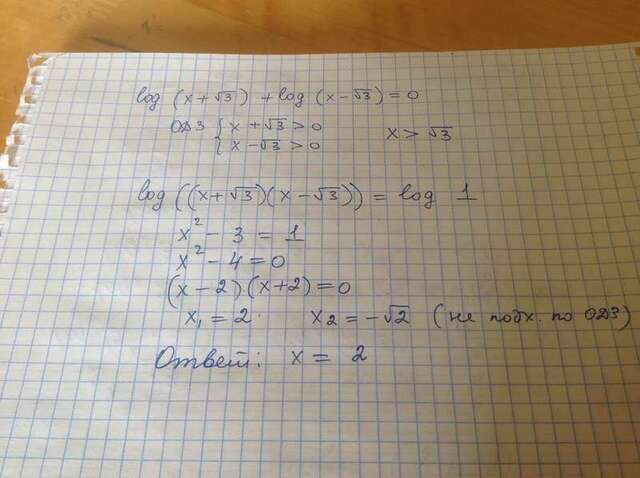 log (x+√3) + log (x-√3) = 0
ОДЗ { x + √3 > 0 x > √3
x - √3 > 0
log ((x+√3)(x-√3)) = log 1
x² - 3 = 1
x² - 4 = 0
(x-2)(x+2) = 0
x₁ = 2. x₂ = -√2 (не подх. по ОДЗ)
Ответ: x = 2